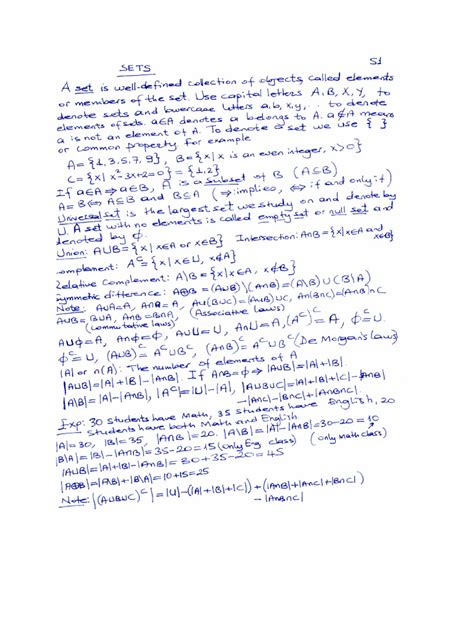 S1
SETS
A set is well-defined collection of objects, called elements
or members of the set. Use capital letters A, B, X, Y, to
denote sets and lowercase letters a, b, x, y, .. to denote
elements of sets. a∈A denotes a belongs to A. a∉A means
a is not an element of A. To denote a set we use { }
or common property. for example
A = {1, 3, 5, 7, 9}, B = {x | x is an even integer, x>0}
C = {x | x²-3x+2=0} = {1, 2}
If a∈A ⇒ a∈B, A is a subset of B (A⊆B)
A = B ⇔ A⊆B and B⊆A (⇒: implies, ⇔: if and only if)
Universal set is the largest set we study on and denote by
U. A set with no elements is called empty set or null set and
denoted by ϕ.
Union: A∪B = {x | x∈A or x∈B} Intersection: A∩B = {x | x∈A and x∈B}
omplement: A^c = {x | x∈U, x∉A}
elative Complement: A\B = {x | x∈A, x∉B}
ymmetric difference: A⊕B = (A∪B)\(A∩B) = (A\B)∪(B\A)
Note: A∪A=A, A∩A=A, A∪(B∪C)=(A∪B)∪C, A∩(B∩C)=(A∩B)∩C
A∪B = B∪A, A∩B = B∩A, (Associative laws)
(Commutative laws)
A∪ϕ=A, A∩ϕ=ϕ, A∪U=U, A∩U=A, (A^c)^c=A, ϕ^c=U.
ϕ^c=U, (A∪B)^c=A^c∩B^c, (A∩B)^c=A^c∪B^c (De Morgan's laws)
|A| or n(A): The number of elements of A
|A∪B|=|A|+|B|-|A∩B|. If A∩B=ϕ ⇒ |A∪B|=|A|+|B|.
|A\B|=|A|-|A∩B|, |A^c|=|U|-|A|, |A∪B∪C|=|A|+|B|+|C|-|A∩B|
-|A∩C|-|B∩C|+|A∩B∩C|.
Exp: 30 students have Math, 35 students have English, 20
students have both Math and English
|A|=30, |B|=35, |A∩B|=20. |A\B|=|A|-|A∩B|=30-20=10
(only Math class)
|B\A|=|B|-|A∩B|=35-20=15 (only Eng class)
|A∪B|=|A|+|B|-|A∩B|=30+35-20=45
|A⊕B|=|A\B|+|B\A|=10+15=25
Note: |(A∪B∪C)^c|=|U|-(|A|+|B|+|C|)+(|A∩B|+|A∩C|+|B∩C|)
-|A∩B∩C|